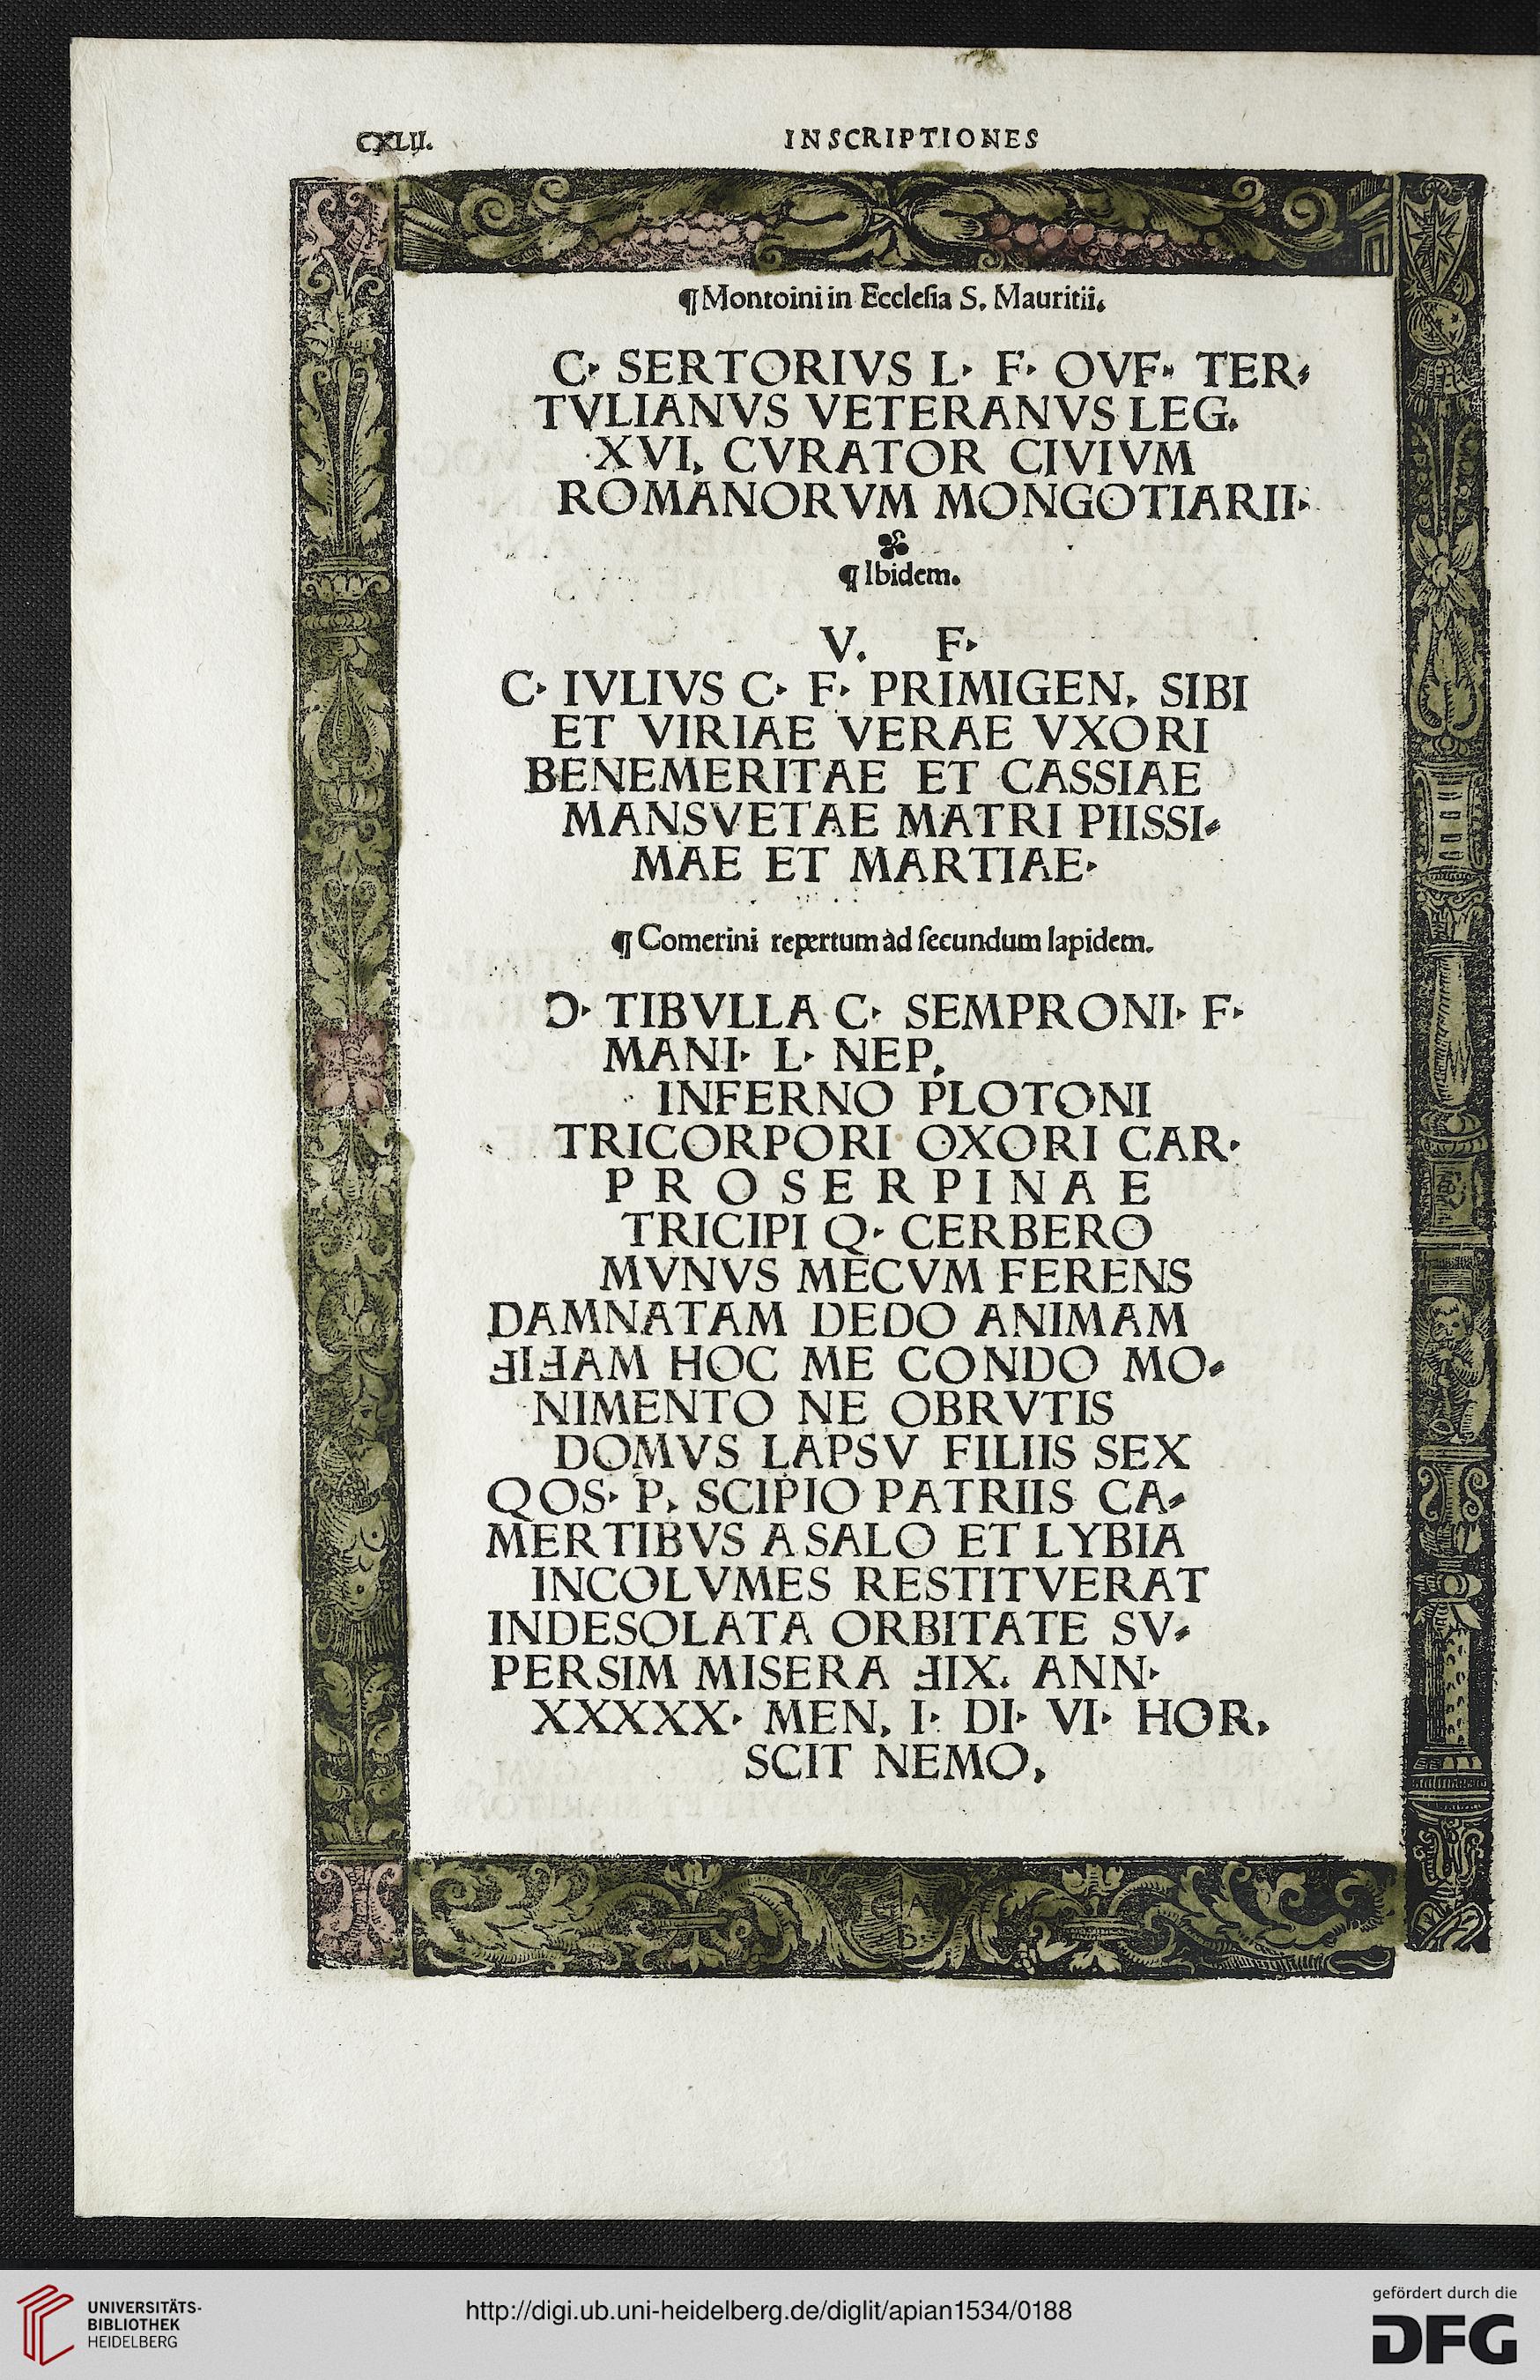 CXLII.
INSCRIPTIONES
¶ Montoini in Ecclesia S. Mauritii.
C· SERTORIVS L· F· OVF· TER⸗
TVLIANVS VETERANVS LEG.
XVI, CVRATOR CIVIVM
ROMANORVM MONGOTIARII·
¶ Ibidem.
V. F·
C· IVLIVS C· F· PRIMIGEN, SIBI
ET VIRIAE VERAE VXORI
BENEMERITAE ET CASSIAE
MANSVETAE MATRI PIISSI⸗
MAE ET MARTIAE·
¶ Comerini repertum àd secundum lapidem.
Ɔ· TIBVLLA C· SEMPRONI· F·
MANI· L· NEP,
INFERNO PLOTONI
TRICORPORI OXORI CAR·
PROSERPINAE
TRICIPI Q· CERBERO
MVNVS MECVM FERENS
DAMNATAM DEDO ANIMAM
ƎIƎAM HOC ME CONDO MO⸗
NIMENTO NE OBRVTIS
DOMVS LAPSV FILIIS SEX
QOS· P, SCIPIO PATRIIS CA⸗
MERTIBVS A SALO ET LYBIA
INCOLVMES RESTITVERAT
INDESOLATA ORBITATE SV⸗
PERSIM MISERA ƎIX. ANN·
XXXXX· MEN, I· DI· VI· HOR,
SCIT NEMO,
UNIVERSITÄTS-
BIBLIOTHEK
HEIDELBERG
http://digi.ub.uni-heidelberg.de/diglit/apian1534/0188
gefördert durch die
DFG